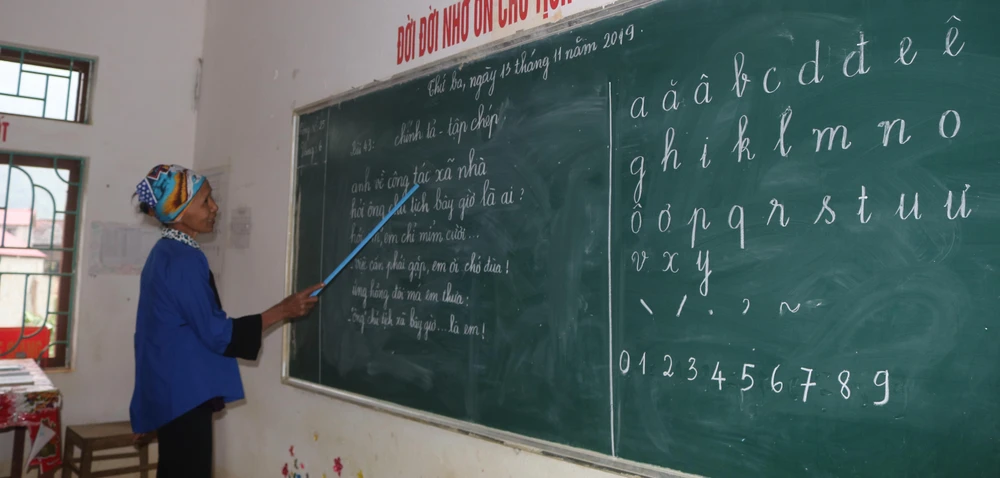 ĐỜI ĐỜI NHỚ ƠN CHỦ TỊCH
Thứ ba, ngày 13 tháng 11 năm 2019.
Bài 43: chính tả - tập chép.
anh về công tác xã nhà
hỏi ông chủ tịch bây giờ là ai?
em chỉ mỉm cười...
cần phải gặp, em ơi chớ đùa!
ửng hồng đôi má em thưa:
"Ông" chủ tịch xã bây giờ...là em!
a ă â b c d đ e ê
g h i k l m n o
ô ơ p q r s t u ư
v x y
0 1 2 3 4 5 6 7 8 9